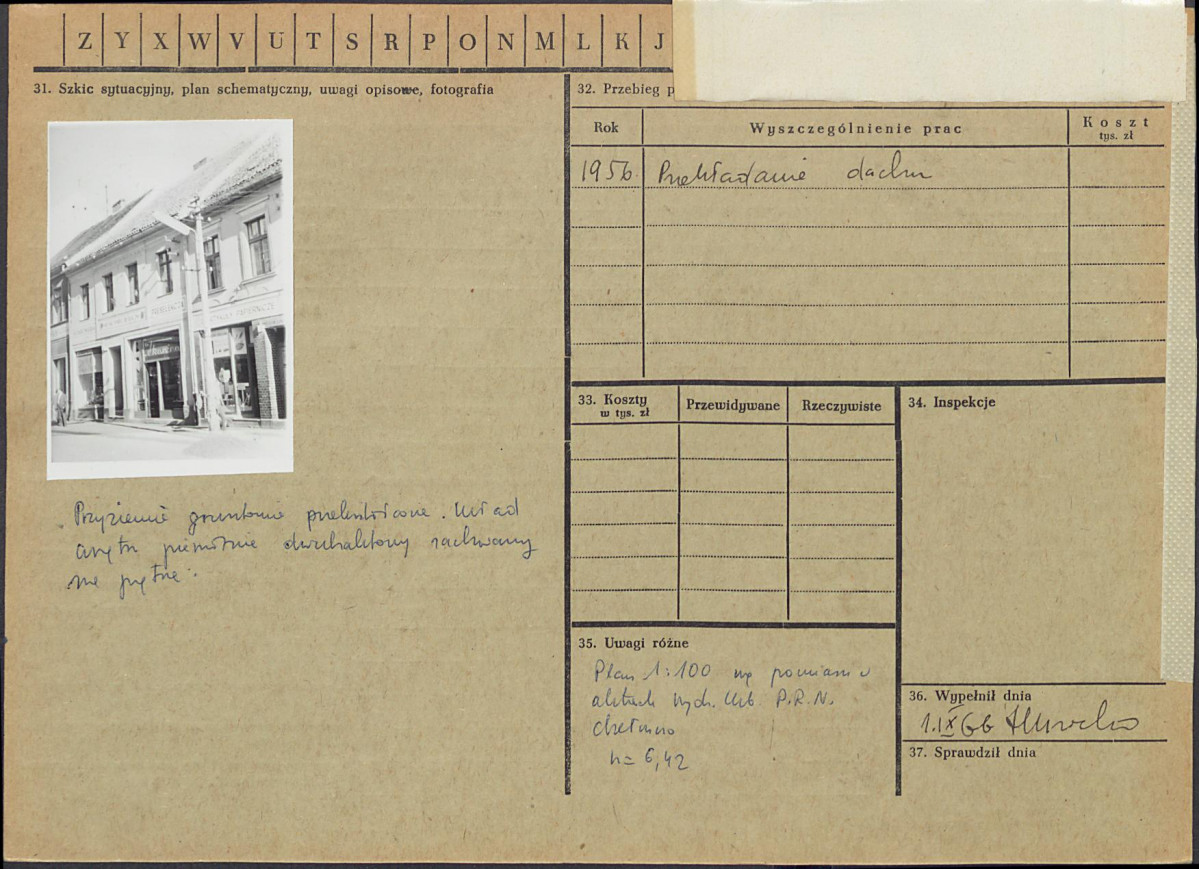 Z Y X W V U T S R P O N M L K J
31. Szkic sytuacyjny, plan schematyczny, uwagi opisowe, fotografia
Przyziemie gruntownie przekształcone. Układ
wnętrz pierwotnie dwutraktowy zachowany
na piętrze.
32. Przebieg p
Rok
Wyszczególnienie prac
Koszt
tys. zł
1956 Przekładanie dachu
33. Koszty
w tys. zł
Przewidywane
Rzeczywiste
34. Inspekcje
35. Uwagi różne
Plan 1:100 wg pomiaru w
aktach Wydz. P.R.N.
Chełmno
h= 6,42
36. Wypełnił dnia
1.IX 66
37. Sprawdził dnia